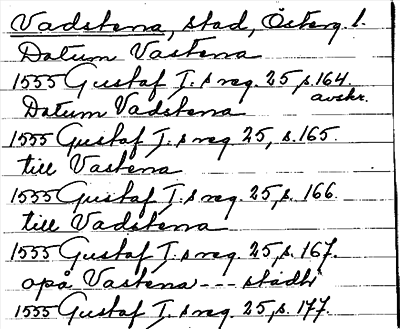 Vadstena, stad, Österg. l.
Datum Vastena
1555 Gustaf I:s reg. 25, s. 164.
avskr.
Datum Vadstena
1555 Gustaf I:s reg. 25, s. 165.
till Vastena
1555 Gustaf I:s reg. 25, s. 166.
till Vadstena
1555 Gustaf I:s reg. 25, s. 167.
opå Vastena --- stådh
1555 Gustaf I:s reg. 25, s. 177.